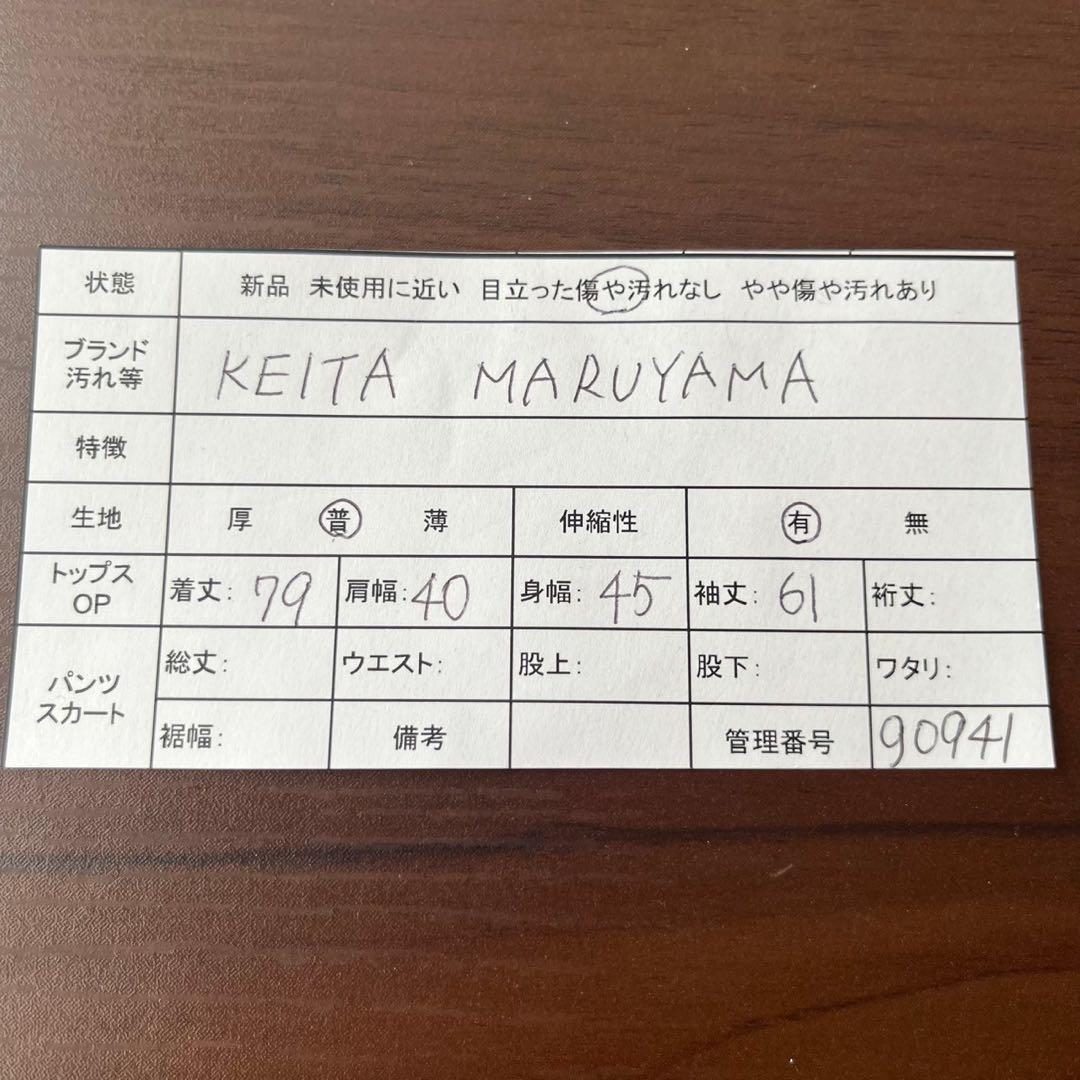 状態 新品 未使用に近い 目立った傷や汚れなし やや傷や汚れあり
ブランド
汚れ等 KEITA MARUYAMA
特徴
生地 厚 普 薄 伸縮性 有 無
トップス
OP 着丈: 79 肩幅: 40 身幅: 45 袖丈: 61 裄丈:
パンツ
スカート 総丈: ウエスト: 股上: 股下: ワタリ:
裾幅: 備考 管理番号 90941